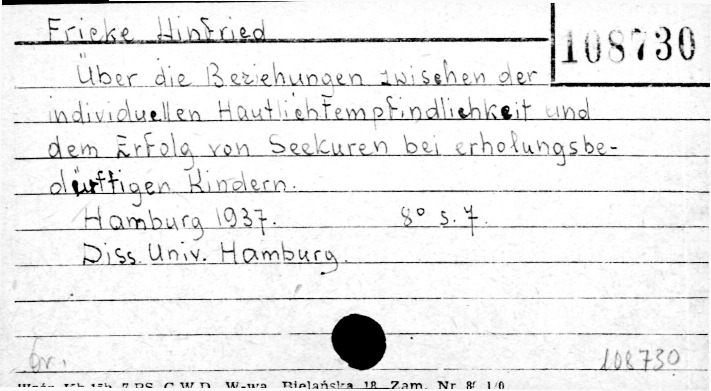 Fricke Hinfried
108730
Über die Beziehungen zwischen der
individuellen Hautlichtempfindlichkeit und
dem Erfolg von Seekuren bei erholungsbe-
dürftigen Kindern.
Hamburg 1937. 8° s. 7.
Diss. Univ. Hamburg.
gr. 108730
C.W.D. W-wa, Bielańska 18 Zam. Nr